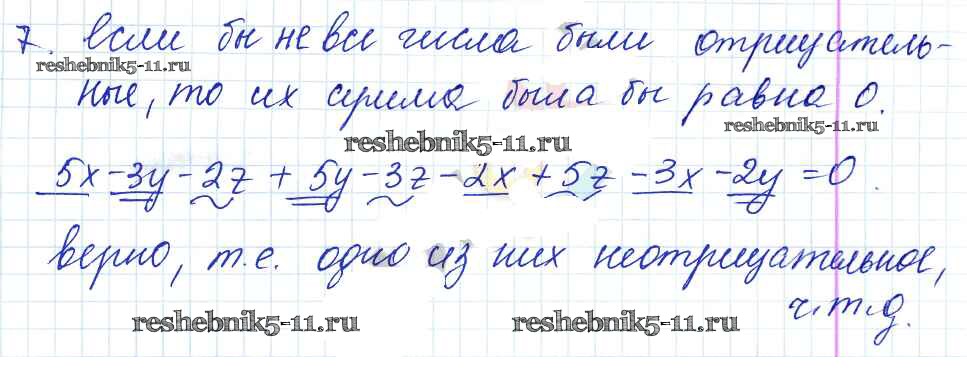 7. если бы не все числа были отрицатель-
reshebnik5-11.ru
ные, то их сумма была бы равна 0.
reshebnik5-11.ru
reshebnik5-11.ru
5x - 3y - 2z + 5y - 3z - 2x + 5z - 3x - 2y = 0.
верно, т.е. одно из них неотрицательное,
ч.т.д.
reshebnik5-11.ru
reshebnik5-11.ru